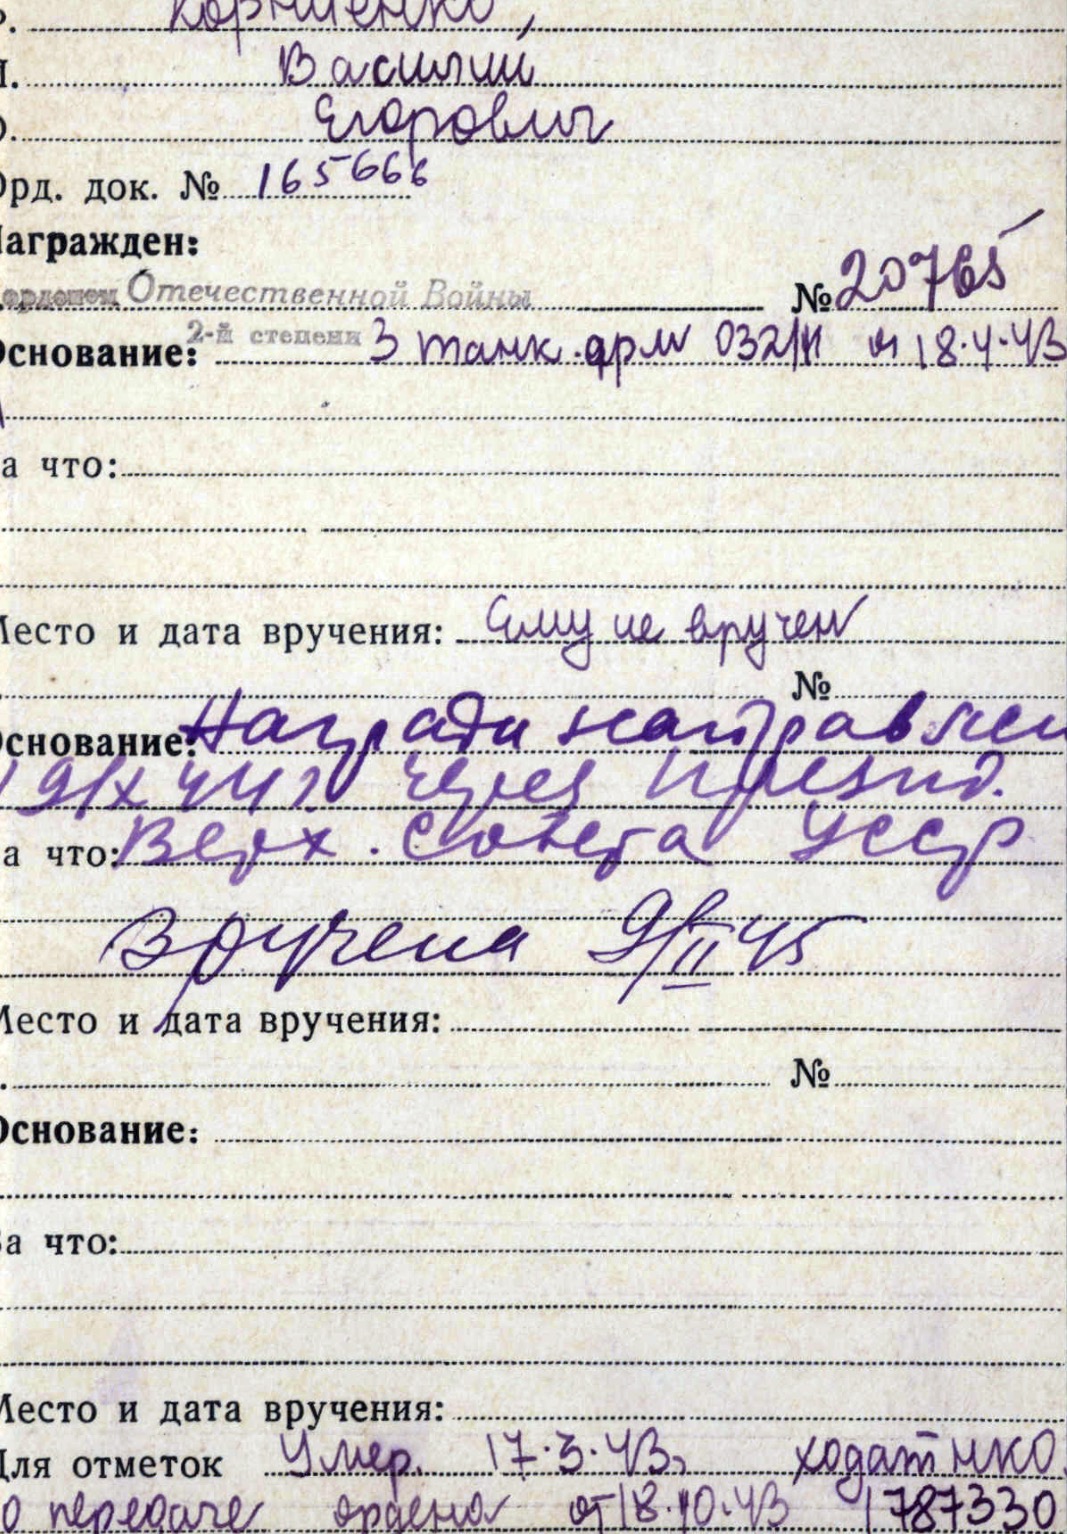 Василий
Егорович
Орд. док. № 165666
Награжден:
орденом Отечественной Войны № 20765
2-й степени
Основание: 3 танк. арм 032/н от 18.4.43
а что:
Место и дата вручения: Ему не вручен
№
Основание: Награда направлен
19/X 44 г. через Презид.
а что: Верх. Совета УССР
Вручена 9/II 45
Место и дата вручения:
№
Основание:
За что:
Место и дата вручения:
Для отметок Умер. 17.3.43г ходат НКО.
о передаче ордена от 18.10.43 1787330